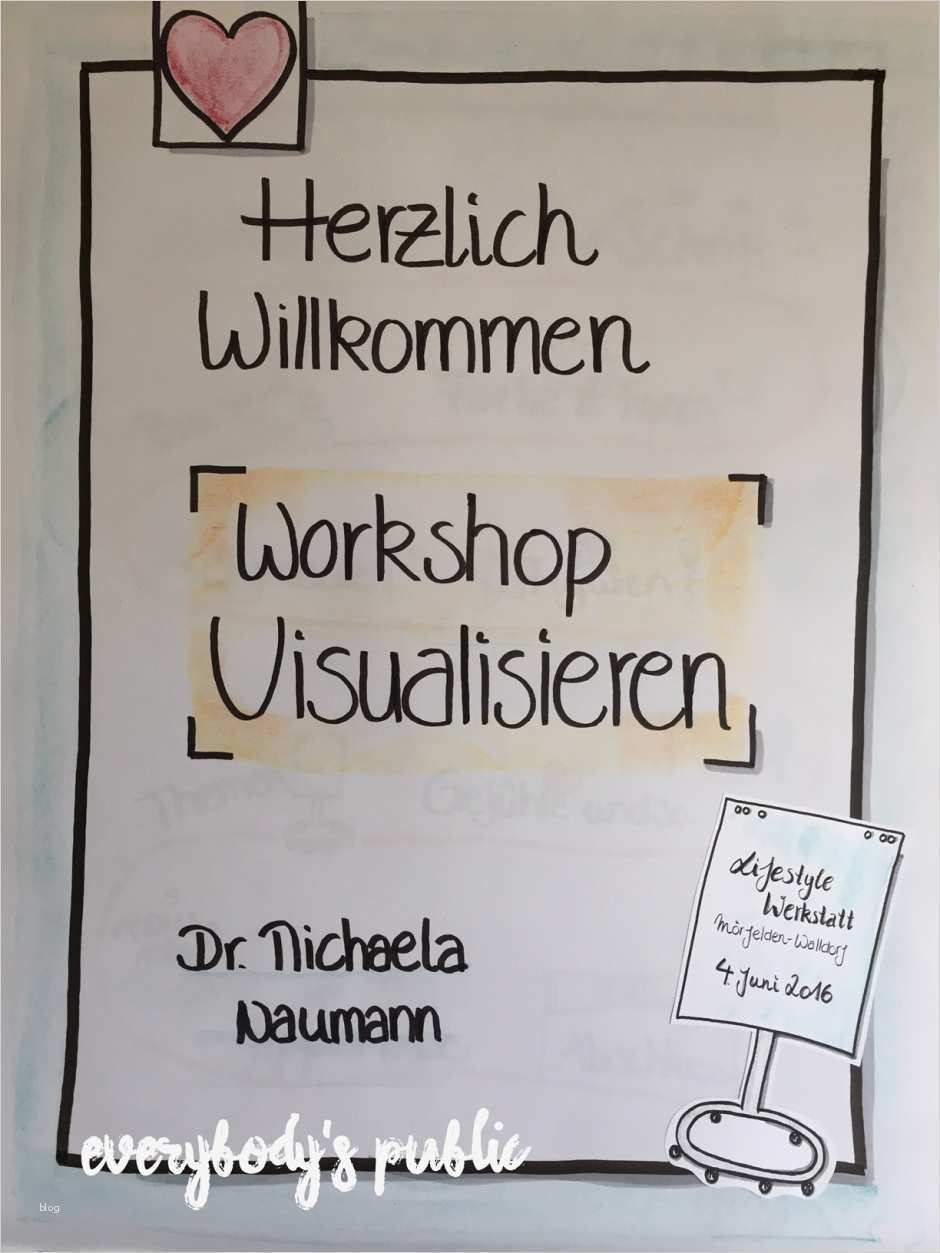 Herzlich
Willkommen
Workshop
Visualisieren
Lifestyle
Werkstatt
Mörfelden-Walldorf
4. Juni 2016
Dr. Michaela
Naumann
everybody's public
blog